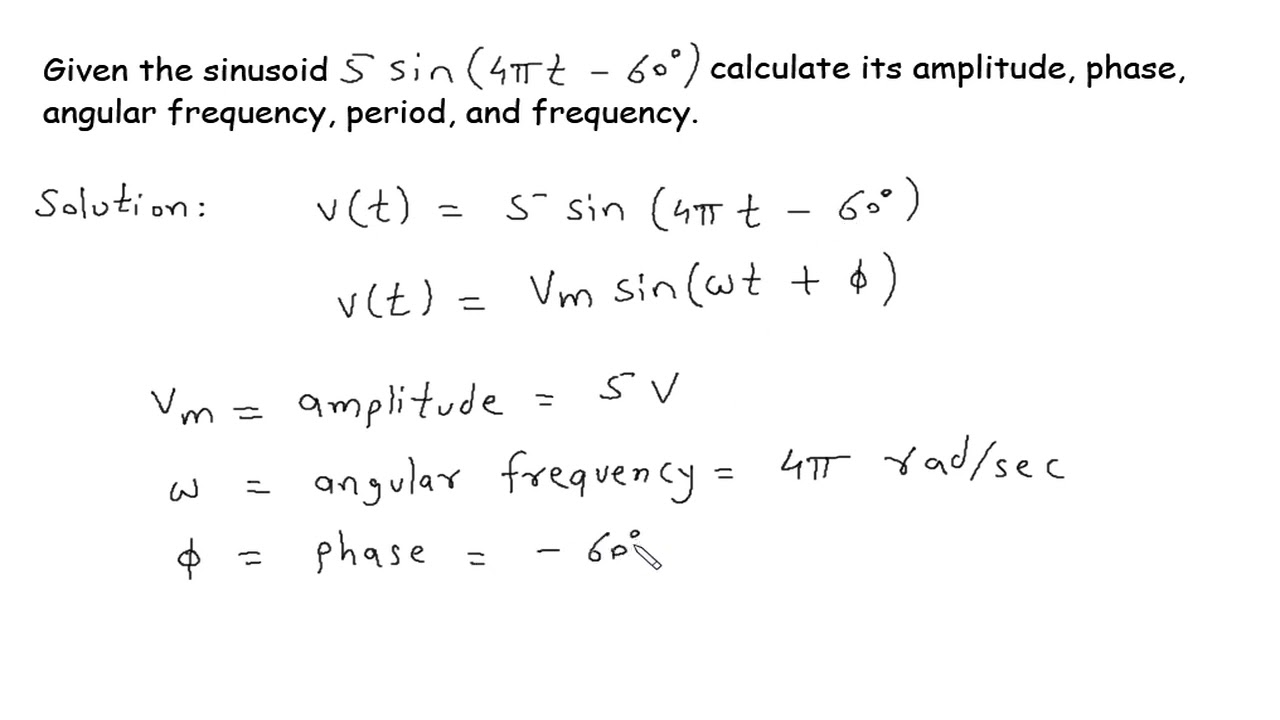 Given the sinusoid 5 sin(4πt - 60°) calculate its amplitude, phase,
angular frequency, period, and frequency.
Solution: v(t) = 5 sin (4π t - 60°)
v(t) = Vm sin(ωt + ϕ)
Vm = amplitude = 5 V
ω = angular frequency = 4π rad/sec
ϕ = phase = - 60°